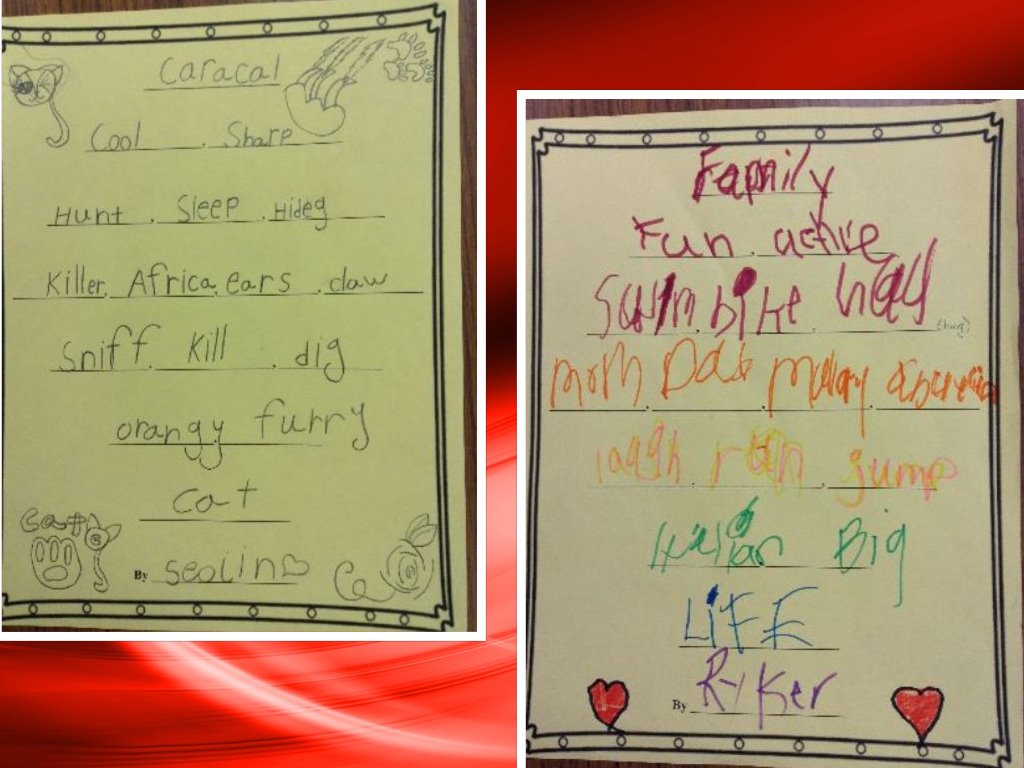 Caracal
Cool, Sharp
Hunt, Sleep, Hideg
Killer, Africa, ears, claw
Sniff, Kill, dig
orangy, furry
cat
cat
By Seolin
Family
Fun, active
Swim, bike, hag
(hug)
mom, Dad
laugh, run, jump
Big
LiFE
By Ryker